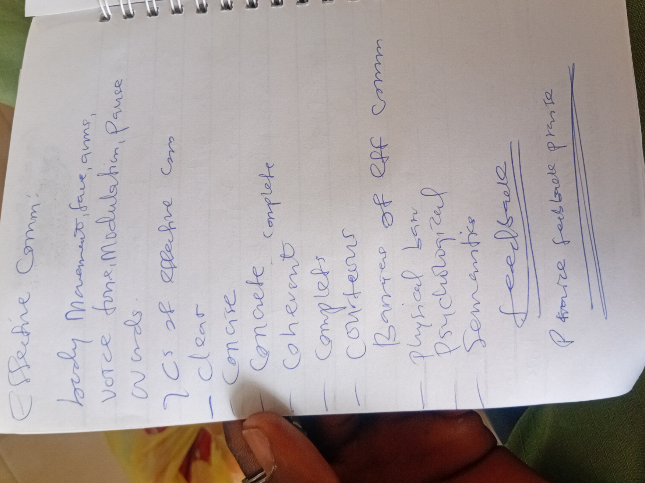 Effective Comm.
body Movements, face, arms,
voice tone, Modulation, Pause
Words.
7 Cs of effective com
- clear
- Concise
- Concrete complete
- Coherent
- Complete
- Courteous
Barriers of eff comm
- Physical barr
- Psychological
- Semantics
feedback
Praise feedback praise